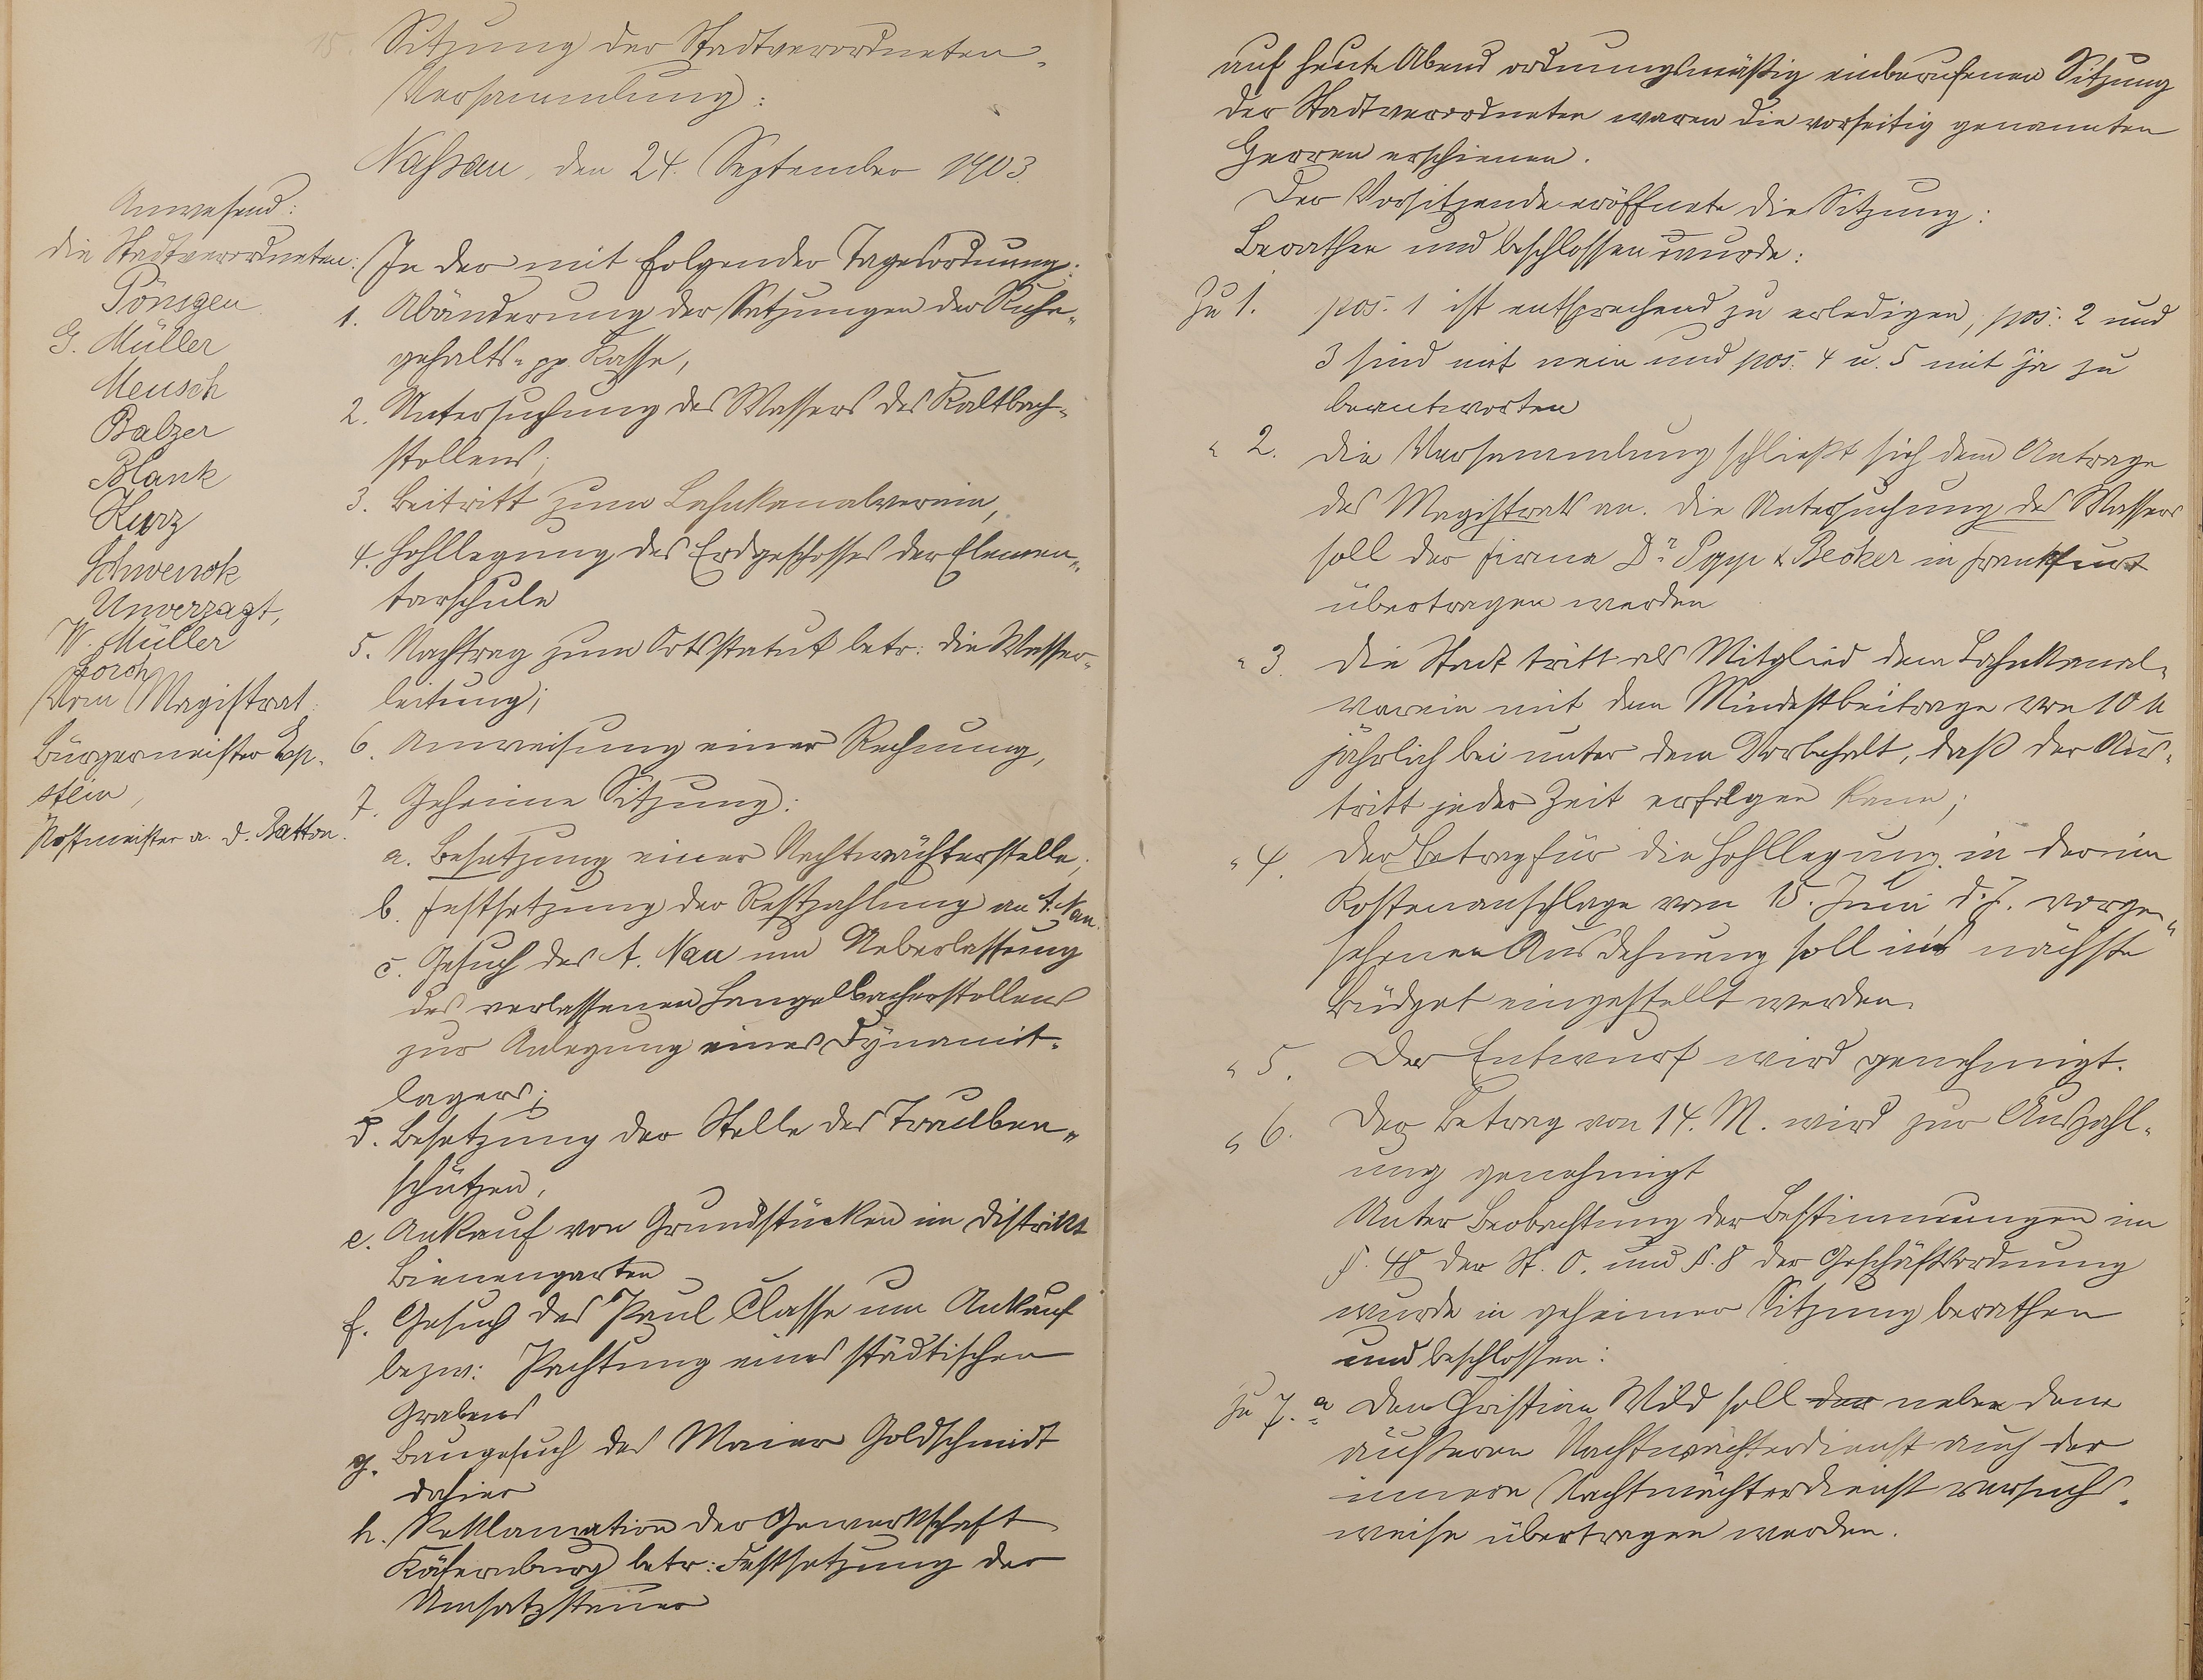 15. Sitzung der Stadtverordneten-
Versammlung:
Nassau, den 24. September 1903.
Anwesend:
die Stadtverordneten:
Pönsgen
G. Müller
Meusch
Balzer
Blank
Kurz
Schwenck
Unverzagt,
W. Müller
Lorch
Vom Magistrat:
Bürgermeister Ep-
stein,
Postmeister a. D. Ratton.
In der mit folgender Tagesordnung:
1. Abänderung der Satzungen der Ruhe-
gehalts- pp Kasse,
2. Untersuchung des Wassers des Kaltbach-
stollens;
3. Beitritt zum Lahnkanalverein,
4. Hohllegung des Erdgeschosses der Elemen-
tarschule
5. Nachtrag zum Ortsstatut betr. die Wasser-
leitung;
6. Anweisung einer Rechnung,
7. Geheime Sitzung:
a. Besetzung einer Nachtwächterstelle,
b. Festsetzung der Restzahlung an A. Nau.
c. Gesuch des A. Nau um Ueberlassung
des verlassenen Hangelbacherstollens
zur Anlegung eines Dynamit-
lagers;
d. Besetzung der Stelle des Trauben-
schützen,
e. Ankauf von Grundstücken im Distrikt
Bienengarten
f. Gesuch des Paul Classe um Ankauf
bezw: Pachtung eines städtischen
Grabens
g. Baugesuch des Maier Goldschmidt
dahier
h. Reklamation der Gewerkschaft
Käfernburg betr: Festsetzung der
Umsatzsteuer
auf heute Abend ordnungsmäßig einberufenen Sitzung
der Stadtverordneten waren die vorseitig genannten
Herren erschienen.
Der Vorsitzende eröffnete die Sitzung:
Berathen und beschlossen wurde:
Zu 1. pos. 1 ist entsprechend zu erledigen, pos: 2 und
3 sind mit nein und pos: 4 u. 5 mit ja zu
beantworten
" 2. Die Versammlung schließt sich dem Antrage
des Magistrats an. Die Untersuchung des Wassers
soll der Firma Dr. Popp & Becker in Frankfurt
übertragen werden
" 3. Die Stadt tritt als Mitglied dem Lahnkanal-
verein mit dem Mindestbeitrage von 10 M
jährlich bei unter dem Vorbehalt, daß der Aus-
tritt jeder Zeit erfolgen kann;
" 4. Der Betrag für die Hohllegung in der im
Kostenanschlage vom 15. Juni d. J. vorge-
sehenen Ausdehnung soll in's nächste
Büdget eingestellt werden.
" 5. Der Entwurf wird genehmigt.
" 6. Der Betrag von 14. M. wird zur Auszahl-
ung genehmigt
Unter Beobachtung der Bestimmungen im
§. 48 der St. O. und §. 8 der Geschäftsordnung
wurde in geheimer Sitzung berathen
und beschlossen:
Zu 7. a Dem Christian Wild soll der neben dem
äußeren Nachtwächterdienst auch der
innere Nachtwächterdienst versuchs-
weise übertragen werden.